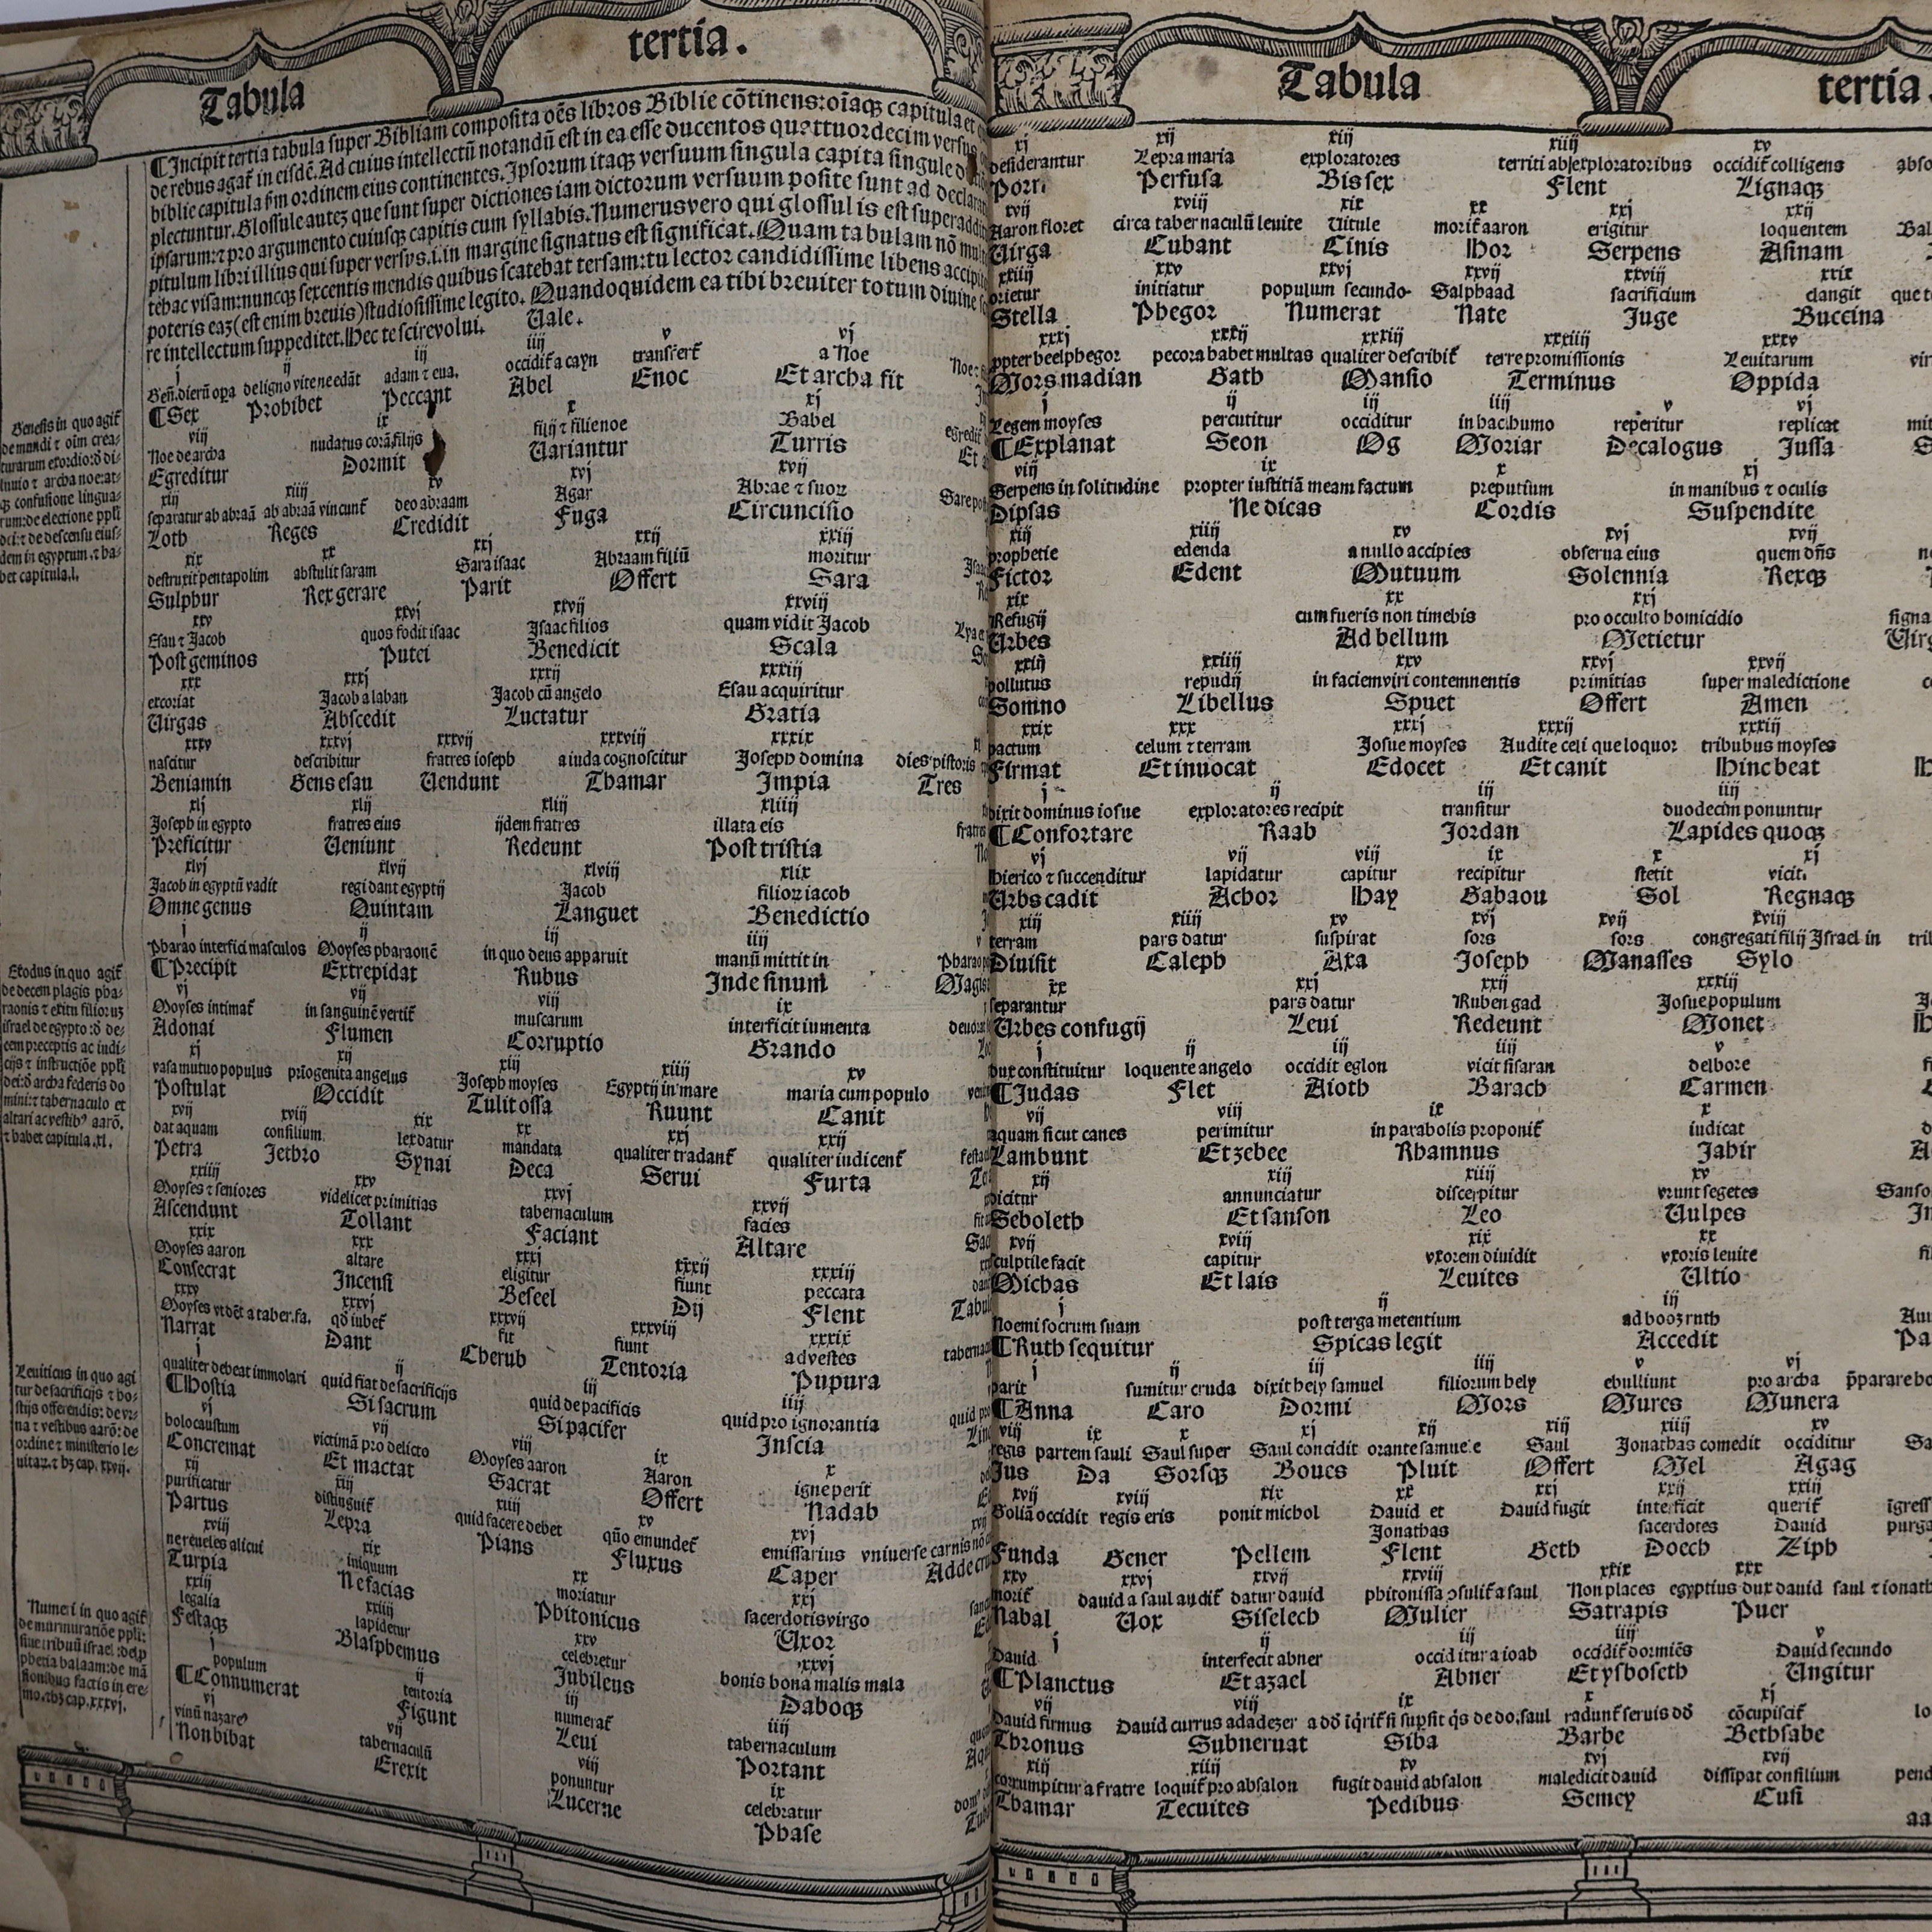 Tabula tertia.
¶Incipit tertia tabula super Bibliam composita oẽs libros Biblie cõtinens: oĩaqꝫ capitula et
de rebus agat̃ in eisdẽ. Ad cuius intellectũ notandũ est in ea esse ducentos quattuordecim versus
biblie capitula fm ordinem eius continentes. Ipsorum itaqꝫ versuum singula capita singule
plectuntur. Glossule auteꝫ que sunt super dictiones iam dictorum versuum posite sunt ad
ipsarum: ⁊ pro argumento cuiusqꝫ capitis cum syllabis. Numerus vero qui glossulis est
pitulum libri illius qui super versus .i. in margine signatus est significat. Quam tabulam nõ
tehac visam: nuncqꝫ sexcentis mendis quibus scatebat tersam: tu lector candidissime libens
poteris eaꝫ (est enim breuis) studiosissime legito. Quandoquidem ea tibi breuiter totum diuine
re intellectum suppeditet. Hec te scire volui. Uale.
j ij iij iiij v vj
deligno vite ne edãt adam ⁊ eua. occidit̃ a cayn transfert̃ a Noe
¶Sex Prohibet Peccant Abel Enoc Et archa fit
viij ix x xj
Noe de archa nudatus corã filijs filij ⁊ filie noe Babel
Egreditur Dormit Uariantur Turris
xiij xiiij xv xvj xvij
separatur ab abraã ab abraã vincunt̃ deo abraam Agar Abrae ⁊ suoꝝ
Loth Reges Credidit Fuga Circuncisio
xix xx xxj xxij xxiij
destruxit pentapolim abstulit saram Sara isaac Abraam filiũ moritur
Sulphur Rex gerare Parit Offert Sara
xxv xxvj xxvij xxviij
Esau ⁊ Jacob quos fodit isaac Isaac filios quam vidit Jacob
Post geminos Putei Benedicit Scala
xxx xxxj xxxij xxxiij
excoriat Jacob a laban Jacob cũ angelo Esau acquiritur
Uirgas Abscedit Luctatur Gratia
xxxv xxxvj xxxvij xxxviij xxxix
nascitur describitur fratres ioseph a iuda cognoscitur Joseph domina dies pistoris
Beniamin Gens esau Uendunt Thamar Impia Tres
xlj xlij xliij xliiij
Joseph in egypto fratres eius ijdem fratres illata eis
Preficitur Ueniunt Redeunt Post tristia
xlvj xlvij xlviij xlix
Jacob in egyptũ vadit regi dant egyptij Jacob filioꝝ iacob
Omne genus Quintam Languet Benedictio
j ij iij iiij
Pharao interfici masculos Moyses pharaonẽ in quo deus apparuit manũ mittit in
¶Precipit Extrepidat Rubus Inde sinum
vj vij viij ix
Moyses intimat̃ in sanguinẽ vertit̃ muscarum interficit iumenta
Adonai Flumen Corruptio Grando
xj xij xiij xiiij xv
vasa mutuo populus p̃iogenita angelus Joseph moyses Egyptij in mare maria cum populo
Postulat Occidit Tulit ossa Ruunt Canit
xvij xviij xix xx xxj xxij
dat aquam consilium lex datur mandata qualiter tradant̃ qualiter iudicent̃
Petra Jethro Synai Deca Serui Furta
xxiiij xxv xxvj xxvij
Moyses ⁊ seniores videlicet primitias tabernaculum facies
Ascendunt Tollant Faciant Altare
xxix xxx xxxj xxxij xxxiij
Moyses aaron altare eligitur fiunt peccata
Consecrat Incensi Beseel Dij Flent
xxxv xxxvj xxxvij xxxviij xxxix
qd̃ iubet̃ fit fiunt ad vestes
Narrat Dant Cherub Tentoria Pupura
j ij iij iiij
qualiter debeat immolari quid fiat de sacrificijs quid de pacificis quid pro ignorantia
¶Hostia Si sacrum Si pacifer Inscia
vj vij viij ix x
holocaustum victimã pro delicto Moyses aaron Aaron igne perit
Concremat Et mactat Sacrat Offert Nadab
xij xiij xiiij xv xvj
purificatur distinguit̃ quid facere debet quõ emundet̃ emissarius vniuerse carnis
Partus Lepra Pians Fluxus Caper
xviij xix xx xxj
ne reueles alicui iniquum moriatur sacerdotis virgo
Turpia Ne facias Phitonicus Uxor
xxiij xxiiij xxv xxvj
legalia lapidetur celebretur bonis bona malis mala
Festaqꝫ Blasphemus Jubileus Daboqꝫ
j ij iij iiij
populum tentoria numerat̃ tabernaculum
¶Connumerat Figunt Leui Portant
vj vij viij ix
tabernaculũ ponuntur celebratur
Non bibat Erexit Lucerne Phase
Genesis in quo agit̃
de mundi ⁊ oĩm crea-
turarum exordio: ð di-
luuio ⁊ archa noe: at-
qꝫ confusione lingua-
rum: de electione ppłi
dei: ⁊ de descensu eius-
dem in egyptum. ⁊ ha-
bet capitula .l.
Exodus in quo agit̃
de decem plagis pha-
raonis ⁊ exitu filioruꝫ
israel de egypto: ð de-
cem preceptis ac iudi-
cijs ⁊ instructiõe ppłi
dei: ð archa federis do
mini: ⁊ tabernaculo et
altari ac vestibꝰ aarõ.
⁊ habet capitula .xl.
Leuiticus in quo agi
tur de sacrificijs ⁊ ho-
stijs offerendis: de vi-
na ⁊ vestibus aarõ: de
ordine ⁊ ministerio le-
uitaꝝ. ⁊ hꝫ cap. xxvij.
Numeri in quo agit̃
de murmuratiõe ppłi:
siue tribuũ israel: de ꝓ
phetia balaam: de mã
sionibus factis in ere-
mo. ⁊ hꝫ cap. xxxvj.
Tabula tertia.
xj xij xiij xiiij xv
desiderantur Lepra maria exploratores territi ab exploratoribus occidit̃ colligens
Porri Perfusa Bis sex Flent Lignaqꝫ
xvij xviij xix xx xxj xxij
Aaron floret circa tabernaculũ leuite Uitule morit̃ aaron erigitur loquentem
Uirga Cubant Cinis Hor Serpens Asinam
xxiiij xxv xxvj xxvij xxviij xxix
orietur initiatur populum secundo- Salphaad sacrificium clangit
Stella Phegor Numerat Nate Juge Buccina
xxxj xxxij xxxiij xxxiiij xxxv
ppter beelphegor pecora habet multas qualiter describit̃ terre promissionis Leuitarum
Mors madian Gath Mansio Terminus Oppida
j ij iij iiij v vj
Legem moyses percutitur occiditur in hac humo reperitur replicat
¶Explanat Seon Og Moriar Decalogus Jussa
viij ix x xj
Serpens in solitudine propter iustitiã meam factum preputium in manibus ⁊ oculis
Dipsas Ne dicas Cordis Suspendite
xiij xiiij xv xvj xvij
prophetie edenda a nullo accipies obserua eius quem dñs
Fictor Edent Mutuum Solennia Rexqꝫ
xix xx xxj
Refugij cum fueris non timebis pro occulto homicidio
Urbes Ad bellum Metietur
xxiij xxiiij xxv xxvj xxvij
pollutus repudij in faciem viri contemnentis primitias super maledictione
Somno Libellus Spuet Offert Amen
xxix xxx xxxj xxxij xxxiij
pactum celum ⁊ terram Josue moyses Audite celi que loquor tribubus moyses
Firmat Et inuocat Edocet Et canit Hinc beat
j ij iij iiij
dixit dominus iosue exploratores recipit transitur duodecim ponuntur
¶Confortare Raab Jordan Lapides quoqꝫ
vj vij viij ix x xj
hierico ⁊ succenditur lapidatur capitur recipitur stetit vicit.
Urbs cadit Achor Hay Gabaou Sol Regnaqꝫ
xiij xiiij xv xvj xvij xviij
terram pars datur suspirat sors sors congregati filij Israel in
Diuisit Caleph Axa Joseph Manasses Sylo
xx xxj xxij xxiij
separantur pars datur Ruben gad Josue populum
Urbes confugij Leui Redeunt Monet
j ij iij iiij v
dux constituitur loquente angelo occidit eglon vicit sisaran delbore
¶Judas Flet Aioth Barach Carmen
vij viij ix x
aquam sicut canes perimitur in parabolis proponit̃ iudicat
Lambunt Et zebee Rhamnus Jahir
xij xiij xiiij xv
dicitur annunciatur discerpitur vrunt segetes
Seboleth Et sanson Leo Uulpes
xvij xviij xix xx
sculptile facit capitur vxorem diuidit vxoris leuite
Michas Et lais Leuites Ultio
j ij iij
Noemi socrum suam post terga metentium ad booz ruth
¶Ruth sequitur Spicas legit Accedit
j ij iij iiij v vj
parit sumitur cruda dixit hely samuel filiorum hely ebulliunt pro archa
¶Anna Caro Dormi Mors Mures Munera
viij ix x xj xij xiij xiiij xv
regis partem sauli Saul super Saul concidit orante samuele Saul Jonathas comedit occiditur
Jus Da Sorsqꝫ Boues Pluit Offert Mel Agag
xvij xviij xix xx xxj xxij xxiij
Goliã occidit regis eris ponit michol Dauid et Jonathas Dauid fugit interficit sacerdotes querit̃ Dauid
Funda Gener Pellem Flent Geth Doech Ziph
xxv xxvj xxvij xxviij xxix xxx
morit̃ dauid a saul audit̃ datur dauid phitonissa ꝯsulit̃ a saul Non places egyptius dux dauid
Nabal Uox Siselech Mulier Satrapis Puer
j ij iij iiij v
Dauid interfecit abner occiditur a ioab occidit̃ dormiẽs Dauid secundo
¶Planctus Et azael Abner Et ysboseth Ungitur
vij viij ix x xj
Dauid firmus Dauid currus adadezer radunt̃ seruis cõcupiscit̃
Thronus Subneruat Siba Barbe Bethsabe
xiij xiiij xv xvj xvij
corrumpitur a fratre loquit̃ pro absalon fugit dauid absalon maledicit dauid dissipat consilium
Thamar Tecuites Pedibus Semey Cusi
aa